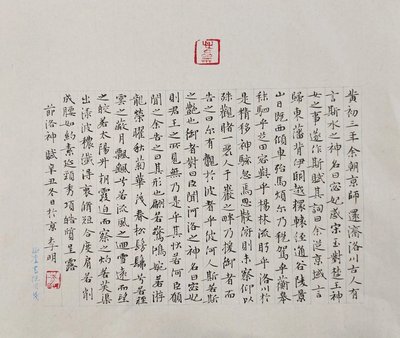 黄初三年余朝京師還濟洛川古人有
言斯水之神名曰宓妃感宋玉對楚王神
女之事遂作斯賦其詞曰余從京域言
歸東藩背伊闕越轘轅經通谷陵景
山日既西傾車殆馬煩尔乃税駕乎蘅皋
秣駟乎芝田容與乎楊林流眄乎洛川於
是精移神駭忽焉思散俯則未察仰以
殊觀睹一麗人于巖之畔乃援御者而
告之曰尔有覿於彼者乎彼何人斯若斯
之艷也御者對曰臣聞河洛之神名曰宓妃
則君王之所見無乃是乎其狀若何臣願
聞之余告之曰其形也翩若驚鴻婉若游
龍榮曜秋菊華茂春松髣髴兮若輕
雲之蔽月飄飖兮若流風之迴雪遠而望
之皎若太陽升朝霞迫而察之灼若芙蕖
出淥波穠纖得衷脩短合度肩若削
成腰如約素延頸秀項皓質呈露
節洛神賦辛丑冬日於京李明